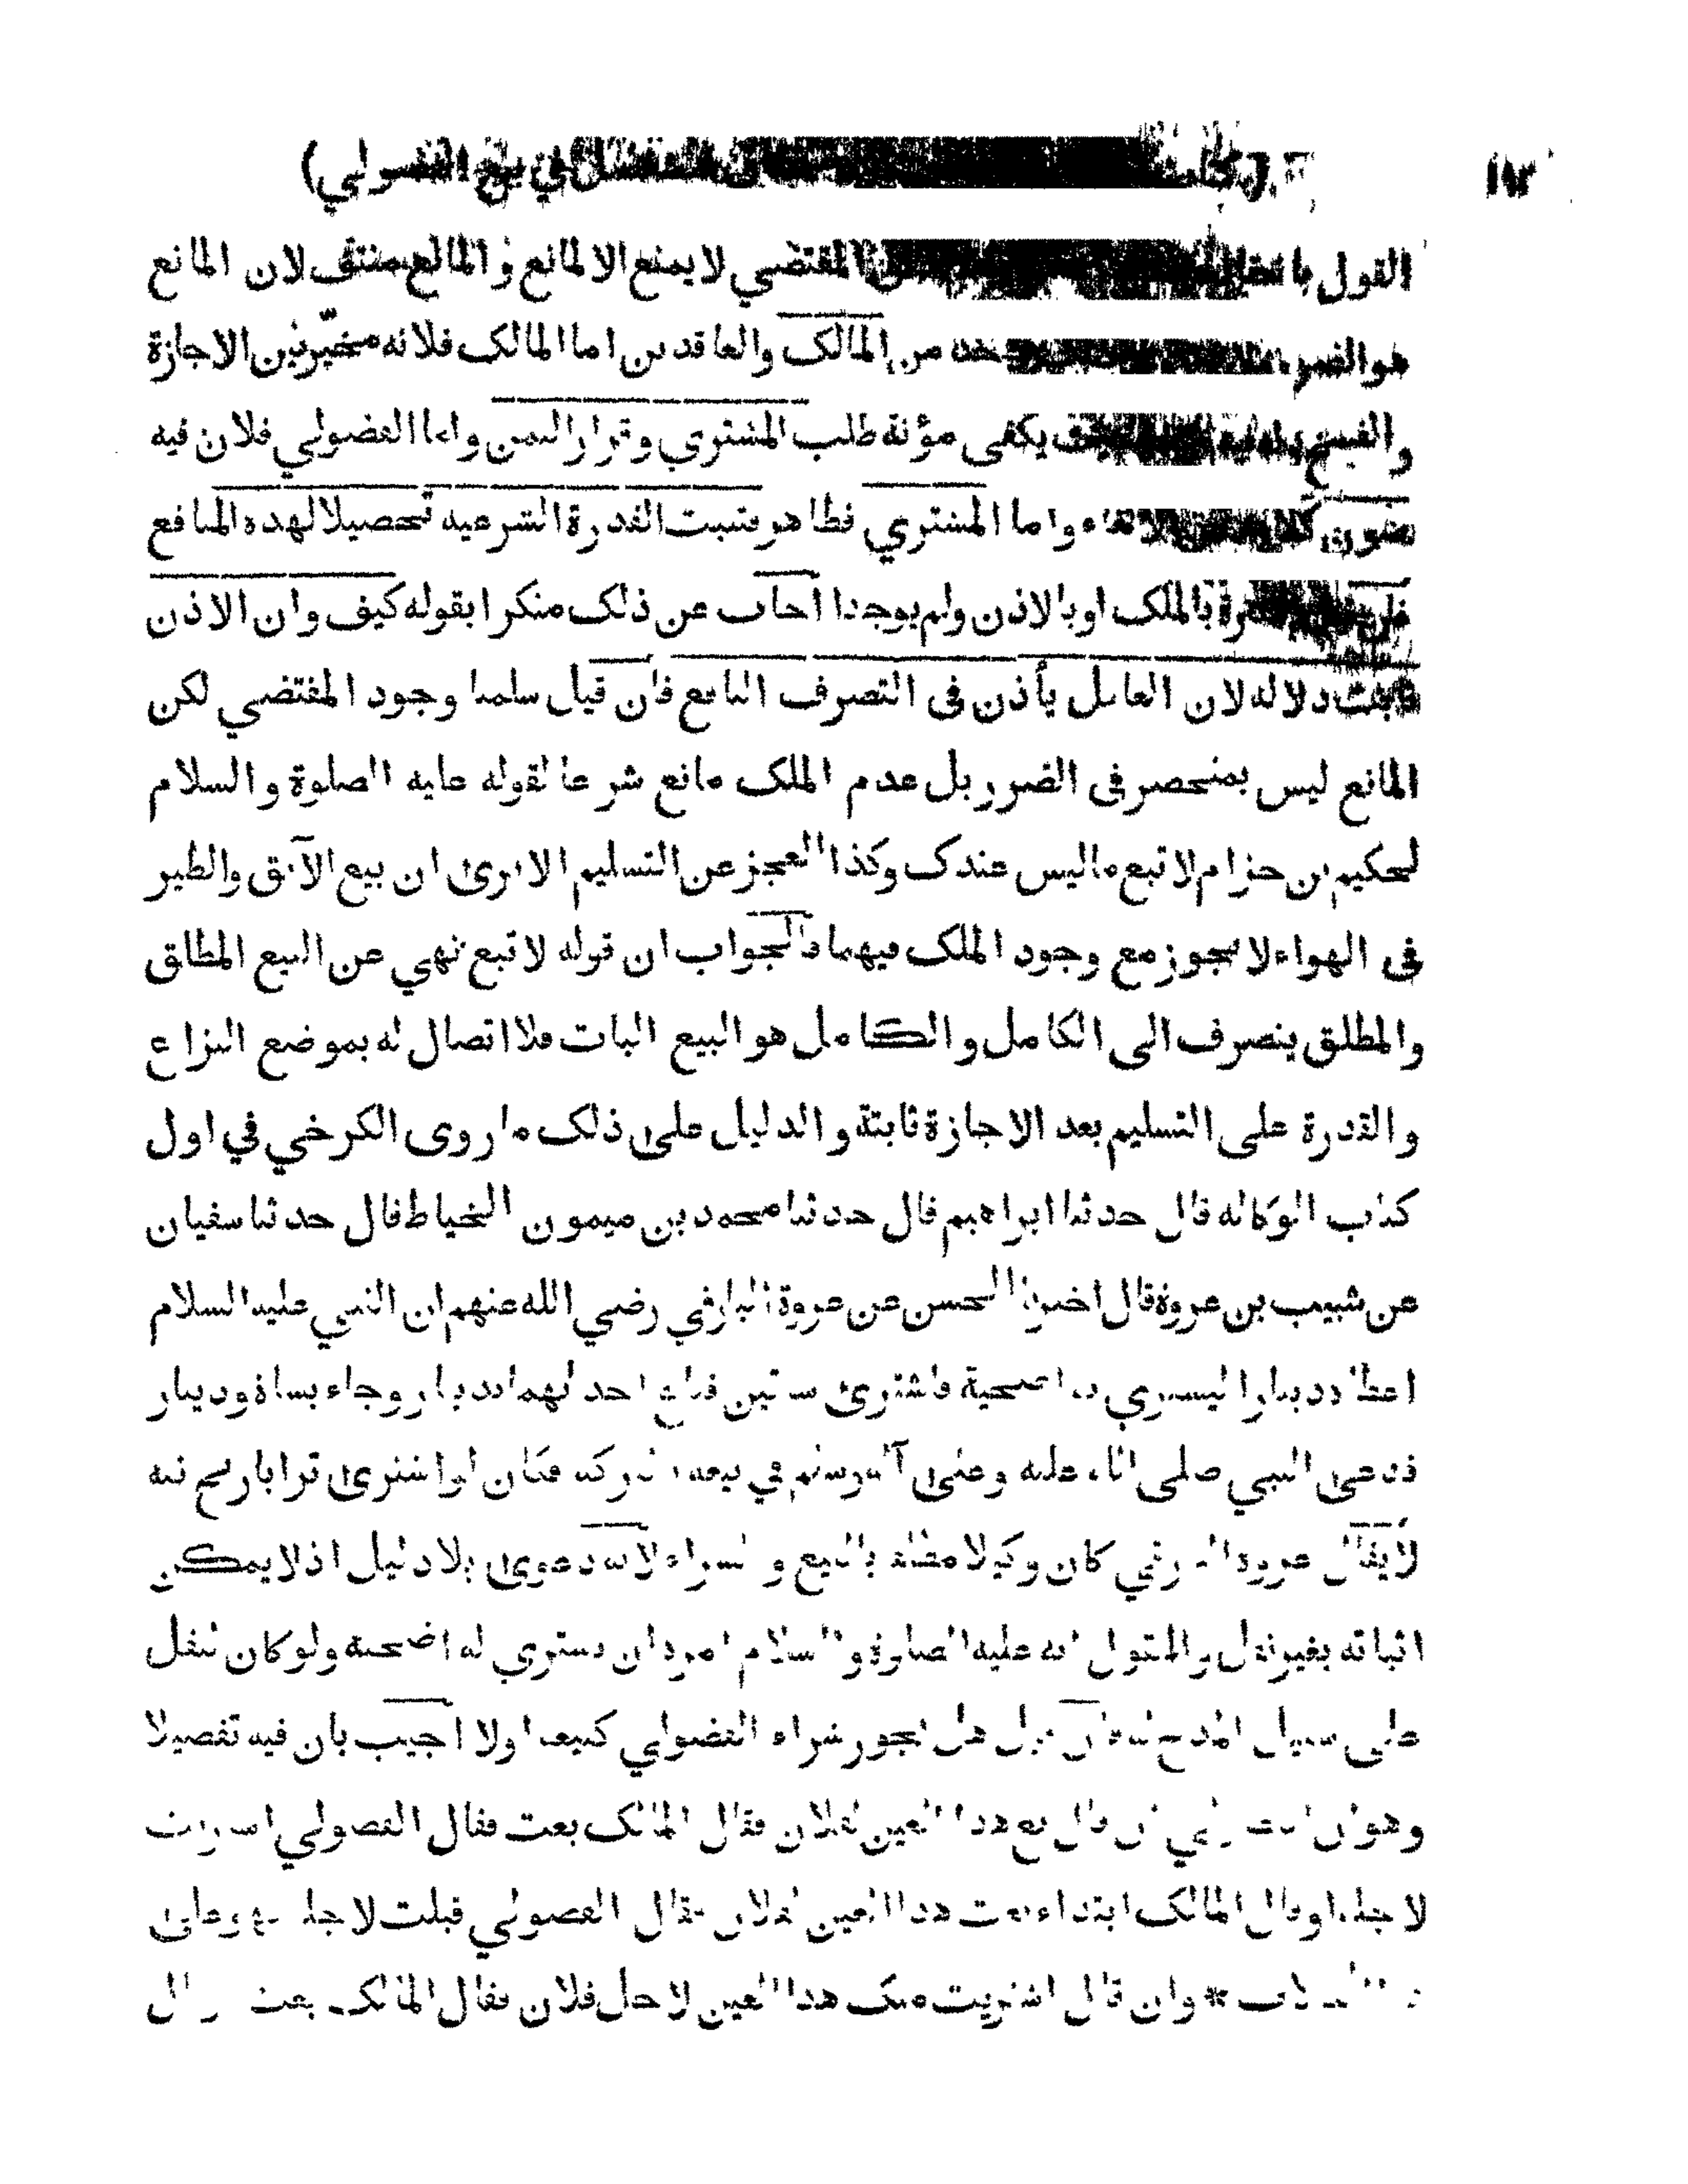 في بيع الفضولي)
القول المقتضي لا يمنع الا لمانع والمانع منتف لان المانع
هو الضرر من المالك والعاقدين اما المالك فلانه مخير بين الاجازة
والفسخ يكفى مؤنة طلب المشتري وقرار الثمن واما الفضولي فلان فيه
صون واما المشتري فظاهر فتثبت القدرة الشرعية تحصيلا لهذه المنافع
بالملك او بالاذن ولم يوجدا اجاب عن ذلك منكرا بقوله كيف وان الاذن
ثابت دلالة لان العاقل يأذن فى التصرف النافع فان قيل سلمنا وجود المقتضي لكن
المانع ليس بمنحصر فى الضرر بل عدم الملك مانع شرعا لقوله عليه الصلوة والسلام
لحكيم بن حزام لا تبع ماليس عندك وكذا العجز عن التسليم الا ترى ان بيع الآبق والطير
فى الهواء لا يجوز مع وجود الملك فيهما فالجواب ان قوله لا تبع نهي عن البيع المطلق
والمطلق ينصرف الى الكامل والكامل هو البيع البات فلا اتصال له بموضع النزاع
والقدرة على التسليم بعد الاجازة ثابتة والدليل على ذلك ما روى الكرخي في اول
كتاب الوكالة قال حدثنا ابراهيم قال حدثنا محمد بن ميمون الخياط قال حدثنا سفيان
عن شبيب بن عروة قال اخبرنا الحسن عن عروة البارقي رضي الله عنهم ان النبي عليه السلام
اعطاه دينارا ليشتري به اضحية فاشترى شاتين فباع احدٰهما بدينار وجاء بشاة ودينار
فدعى النبي صلى الله عليه وعلى آله وسلم في بيعه بالبركة فكان لو اشترى ترابا ربح فيه
لا يقال عروة البارقي كان وكيلا مطلقا بالبيع والشراء لانه دعوى بلا دليل اذ لا يمكن
اثباته بغير نقل والمنقول انه عليه الصلوة والسلام امره ان يشتري له اضحية ولو كان لنقل
على سبيل المدح له فان قيل هل يجوز شراء الفضولي كبيعه اولا اجيب بان فيه تفصيلا
وهو ان الفضولي ان قال بع هذا العين لفلان فقال المالك بعت فقال الفضولي اشتريت
لاجله او قال المالك ابتداء بعت هذا العين لفلان فقال الفضولي قبلت لاجله فهو على
* وان قال اشتريت منك هذا العين لاجل فلان فقال المالك بعت